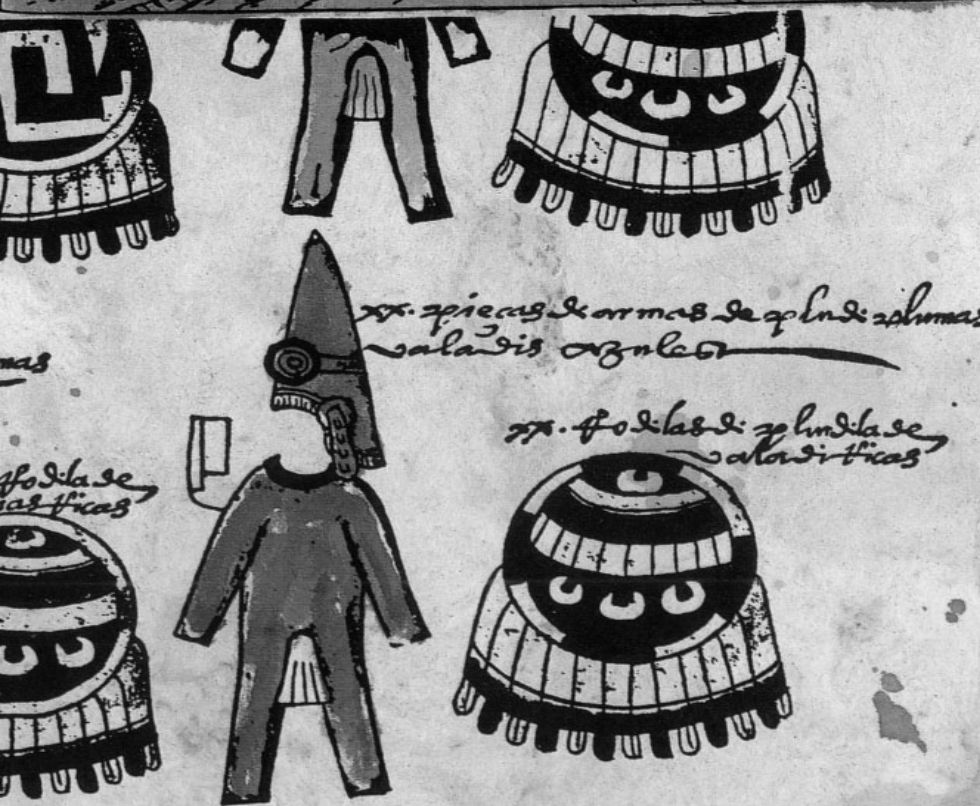 xx. pieças de armas de plu de plumas
valadis azules
mas
xx. Rodelas de de
valadi ricas
Rodela de
ricas